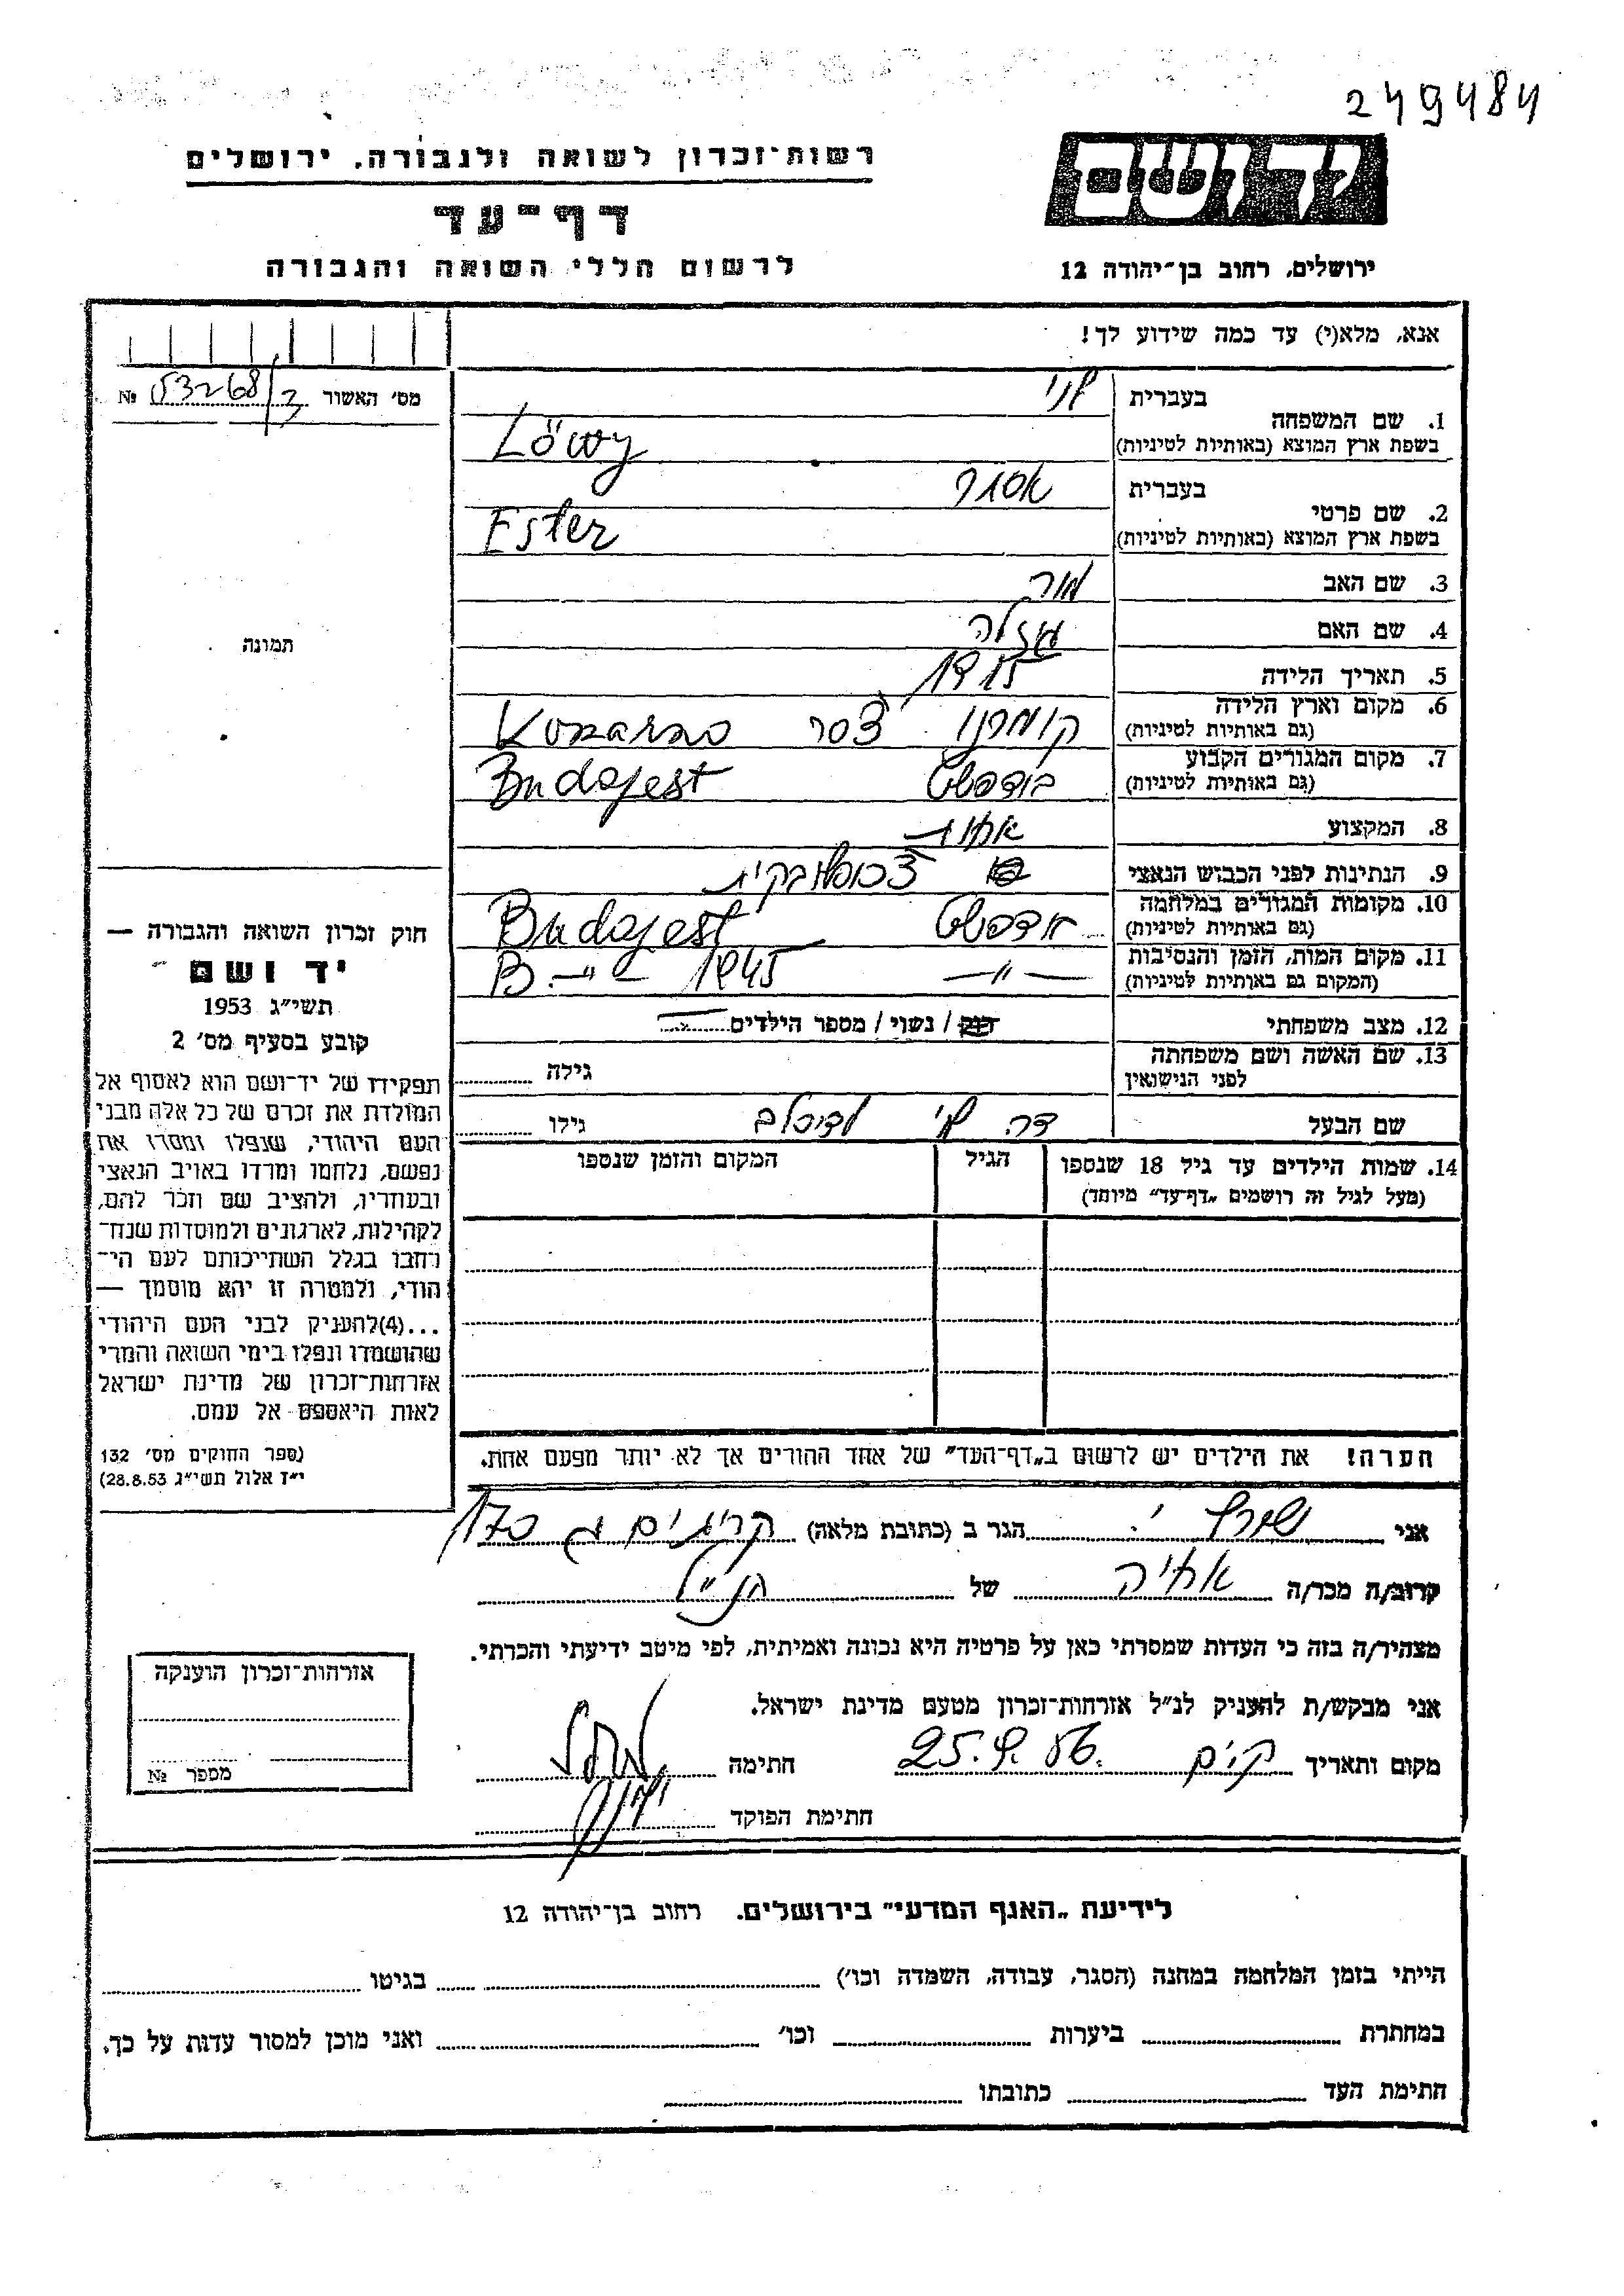 249484
רשות־זכרון לשואה ולגבורה, ירושלים
דף־עד
לרשום חללי השואה והגבורה
יד ושם
ירושלים, רחוב בן־יהודה 12
אנא, מלא(י) עד כמה שידוע לך!
מס' האשור 53268/3 №
תמונה
חוק זכרון השואה והגבורה —
יד ושם
תשי"ג 1953
קובע בסעיף מס' 2
תפקידו של יד־ושם הוא לאסוף אל
המולדת את זכרם של כל אלה מבני
העם היהודי, שנפלו ומסרו את
נפשם, נלחמו ומרדו באויב הנאצי
ובעוזריו, ולהציב שם וזכר להם,
לקהילות, לארגונים ולמוסדות שנח־
רבו בגלל השתייכותם לעם הי־
הודי, ולמטרה זו יהא מוסמך —
...(4)להעניק לבני העם היהודי
שהושמדו ונפלו בימי השואה והמרי
אזרחות־זכרון של מדינת ישראל
לאות היאספם אל עמם.
(ספר החוקים מס' 132
י"ז אלול תשי"ג 28.8.53)
1. שם המשפחה
בעברית לוי
בשפת ארץ המוצא (באותיות לטיניות) Löwy
2. שם פרטי
בעברית אסתר
בשפת ארץ המוצא (באותיות לטיניות) Ester
3. שם האב מור
4. שם האם גזלה
5. תאריך הלידה 1915
6. מקום וארץ הלידה
(גם באותיות לטיניות) קומרנו צסר Komarno
7. מקום המגורים הקבוע
(גם באותיות לטיניות) בודפשט Budapest
8. המקצוע אחות
9. הנתינות לפני הכבוש הנאצי צכוסלובקית
10. מקומות המגורים במלחמה
(גם באותיות לטיניות) בודפשט Budapest
11. מקום המות, הזמן והנסיבות
(המקום גם באותיות לטיניות) — " — B. — " — 1945
12. מצב משפחתי רווק / נשוי / מספר הילדים
13. שם האשה ושם משפחתה
לפני הנישואין גילה
שם הבעל דר. לוי גילו
14. שמות הילדים עד גיל 18 שנספו
(מעל לגיל זה רושמים „דף־עד" מיוחד)
הגיל
המקום והזמן שנספו
הערה! את הילדים יש לרשום ב„דף־העד" של אחד ההורים אך לא יותר מפעם אחת.
אני שורץ י. הגר ב (כתובת מלאה) ק. ים ג 170
קרוב/ה מכר/ה אחיה של הנ"ל
מצהיר/ה בזה כי העדות שמסרתי כאן על פרטיה היא נכונה ואמיתית, לפי מיטב ידיעתי והכרתי.
אני מבקש/ת להעניק לנ"ל אזרחות־זכרון מטעם מדינת ישראל.
מקום ותאריך ק. ים 25.9.56 חתימה
חתימת הפוקד
אזרחות־זכרון הוענקה
מספר №
לידיעת „האגף המדעי" בירושלים. רחוב בן־יהודה 12
הייתי בזמן המלחמה במחנה (הסגר, עבודה, השמדה וכו') בגיטו
במחתרת ביערות וכו' ואני מוכן למסור עדות על כך.
חתימת העד כתובתו